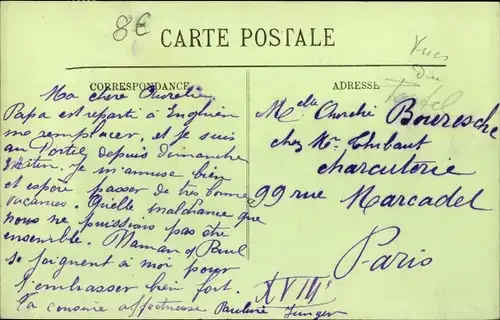 8€
CARTE POSTALE
Vues
du
Portel
CORRESPONDANCE
ADRESSE
Ma chère Aurélie
Papa est reparti à Enghien
me remplacer, et je suis
au Portel depuis dimanche
matin. Je m'amuse bien
et espère passer de très bonnes
vacances. Quelle malchance que
nous ne puissions pas être
ensemble. Maman & Paul
se joignent à moi pour
t'embrasser bien fort.
Ta cousine affectueuse Pauline
Melle Bouresche
chez Mr Thibaut
charcuterie
99 rue Marcadet
Paris
XVIII